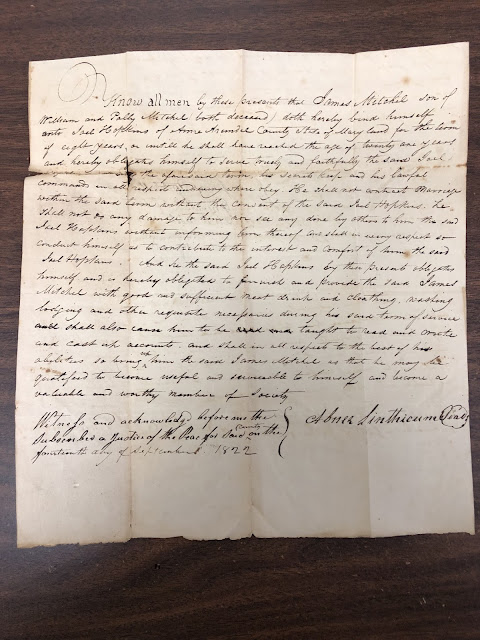 Know all men by these presents that James Mitchel son of
William and Polly Mitchel both deceased, doth hereby bind himself
unto Joel Hopkins of Anne Arundel County State of Maryland for the term
of eight years, or untill he shall have reached the age of twenty one years
and hereby obligates himself to serve truely and faithfully the said Joel
the aforesaid term, his secrets keep and his lawful
commands in all respect every where obey. He shall not contract Marriage
within the said term without the consent of the said Joel Hopkins, he
shall not do any damage to him nor see any done by others to him the said
Joel Hopkins without informing him thereof and shall in every respect so
conduct himself as to contribute to the interest and comfort of him the said
Joel Hopkins. And he the said Joel Hopkins by these presents obligates
himself and is hereby obligated to furnish and provide the said James
Mitchel with good and sufficient meat drink and cloathing, washing
lodging and other requisite necessaries during his said term of service
and shall also cause him to be taught to read and write
and cast up accounts. and shall in all respect to the best of his
abilities so bring up him the said James Mitchel as that he may be
qualified to become useful and serviceable to himself and become a
valuable and worthy member of Society
Witness and acknowledged before me the
Subscriber a Justice of the Peace for said County on the
fourteenth day of September 1822
Abner Linthicum (Seal)